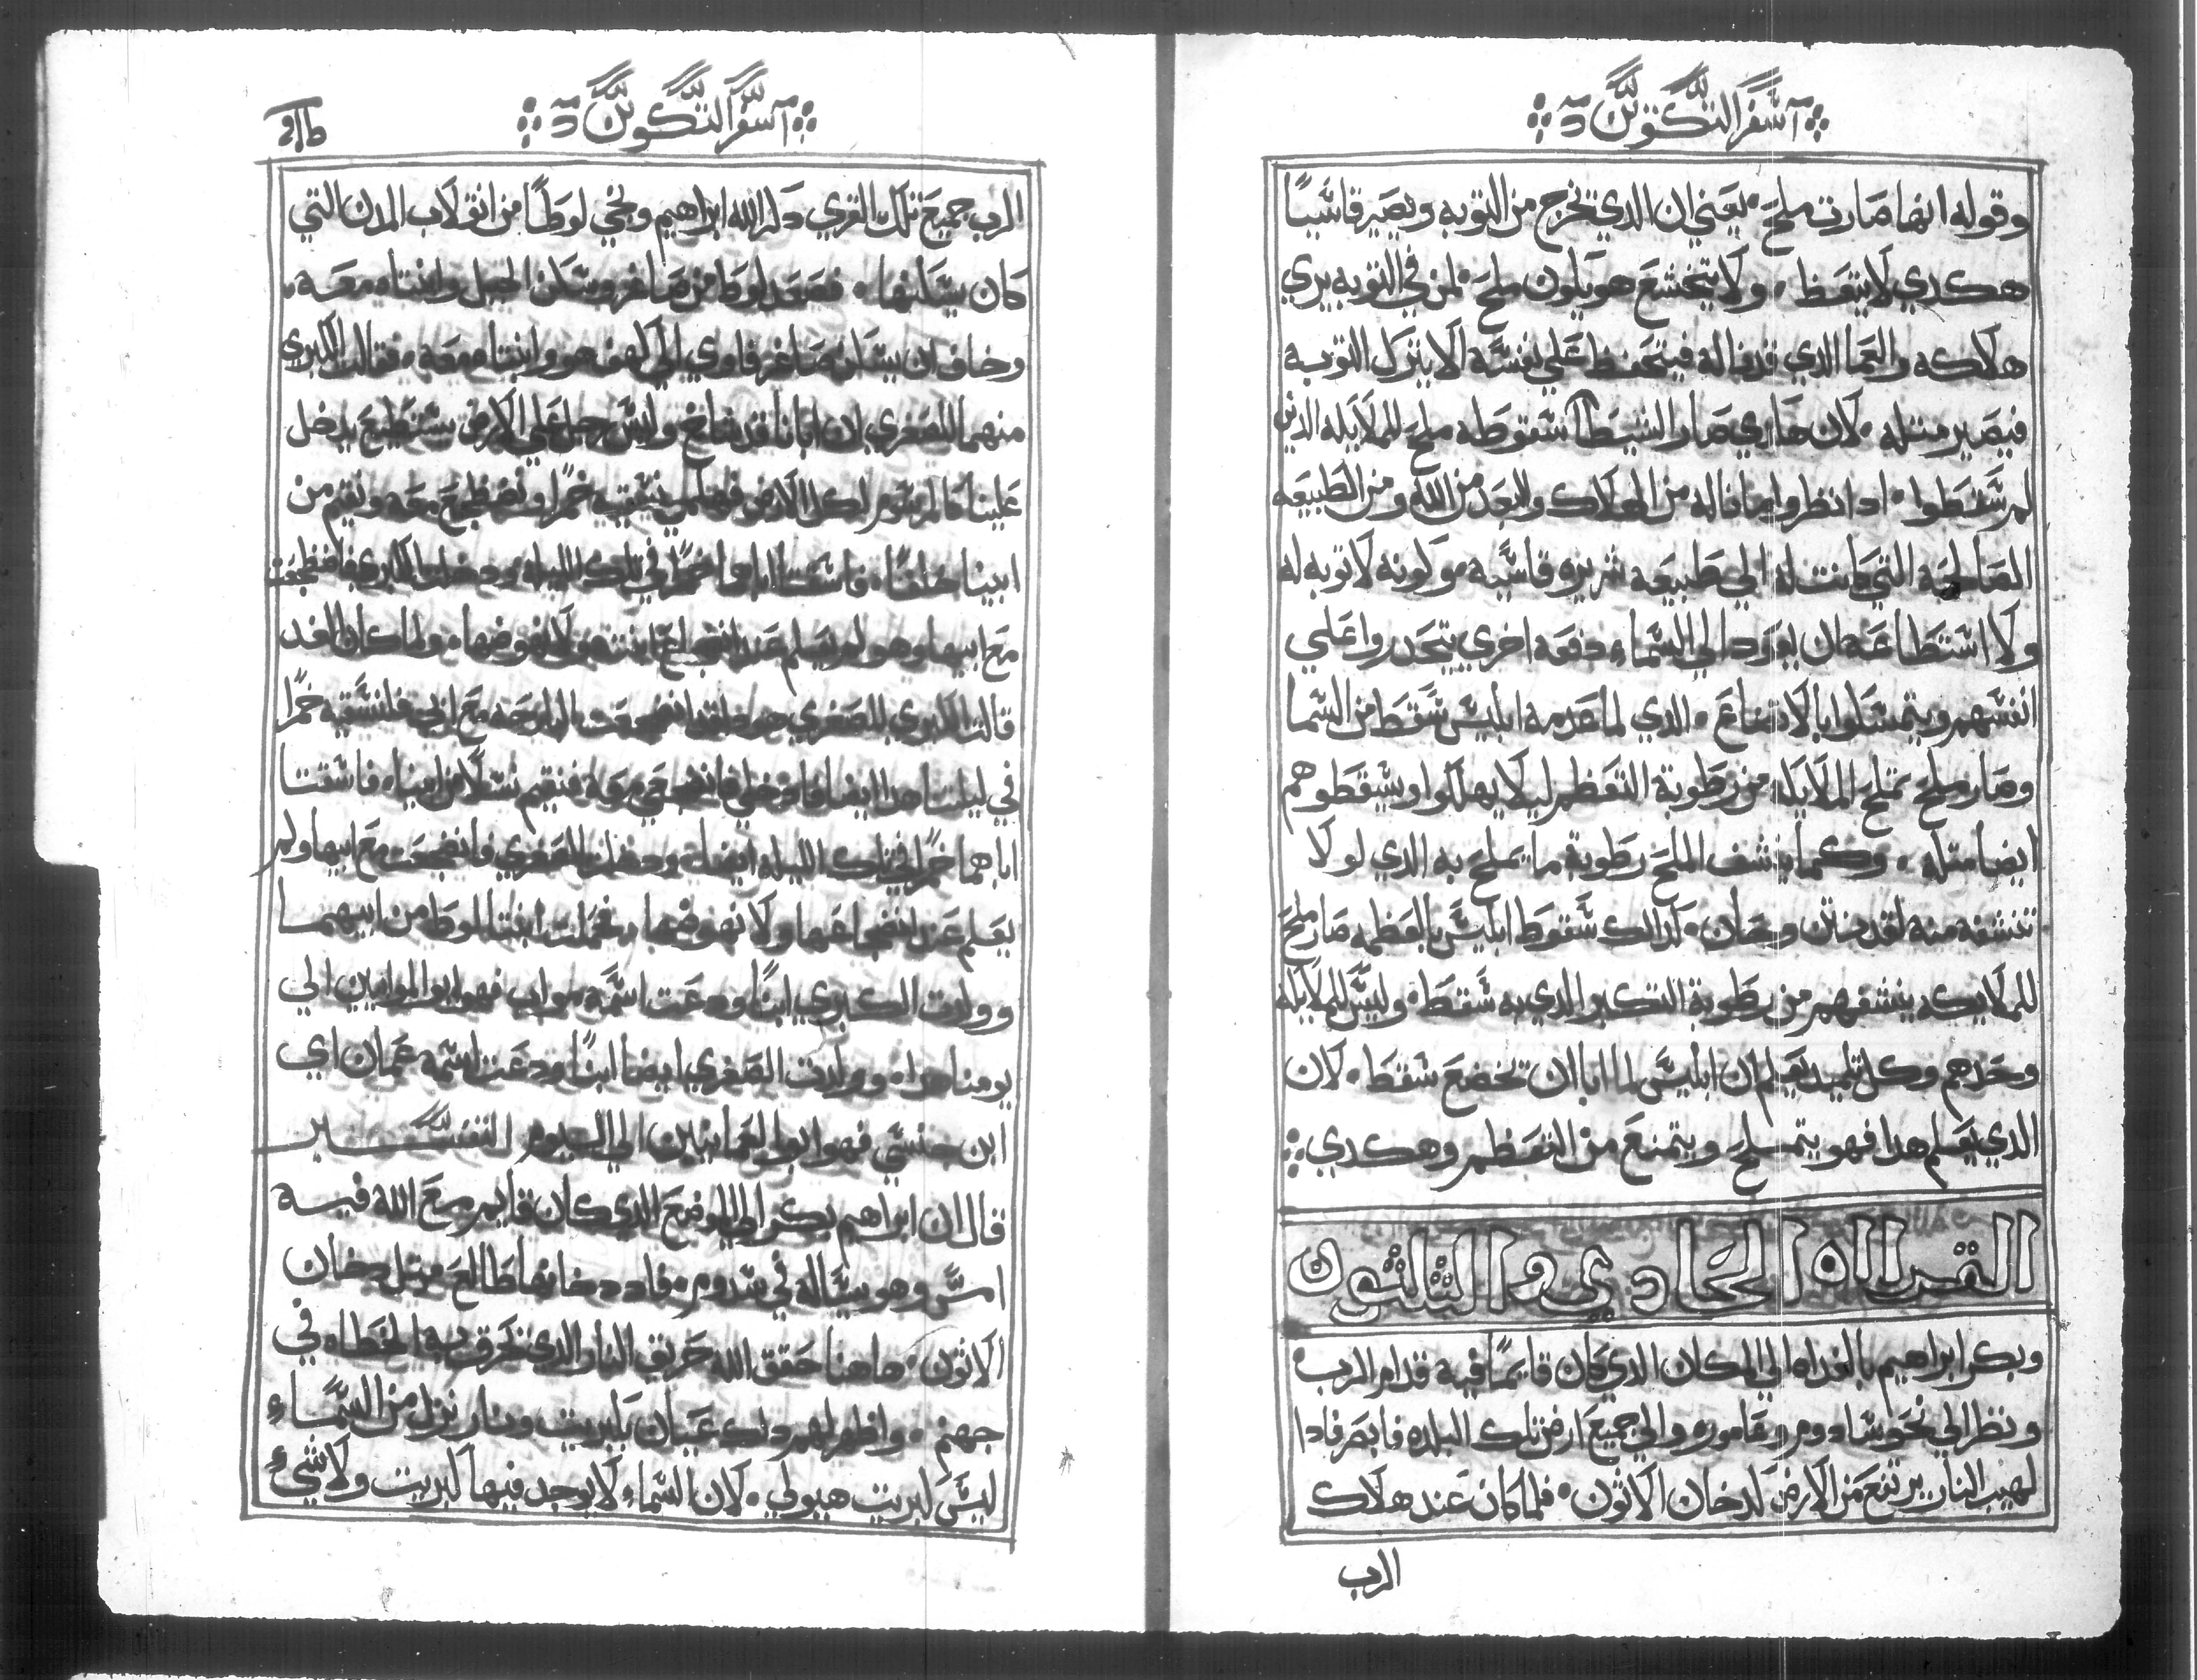 سفر التكوين
وقوله انها صارت ملح يعني ان الدي تخرج من التوبه ويصير قاسيًا
هكدي لا يتعظ ولا يتخشع هو يكون ملح لمن في التوبه يري
هلاكه والعما الدي قد ناله فيتحفظ علي نفسه الا يترك التوبه
فيصير متله لان هكدي صار الشيطا سقوطه ملح للملايكه الدين
لم سقطوا ادا نظروا ما ناله من الهلاك والبعد من الله ومن الطبيعه
الصالحه التي كانت له الي طبيعه شريره قاسيه مولونه لا توبه له
ولا استطاعه ان يعود الي السماء دفعه اخري يتحدروا علي
انفسهم ويتمسكوا بالاتضاع الدي لما عدمه ابليس سقط من السما
وصار ملح تملح الملايكه من رطوبة التعظم ليلا يهلكوا ويسقطوهم
ايضا متله وكما ينشف الملح رطوبة ما يملح به الدي لولا
تنشفه منه لقد نتن وعفن كدالك سقوط ابليس بالعظمه صار ملح
للملايكه ينشفهم من رطوبة التكبر الدي به سقط وليس للملايكه
وحدهم وكل تلميد يعلم ان ابليس لما ابا ان تخضع سقط لان
الدي يعلم هدا فهو يتملح ويتمنع من التعظم وهكدي
القراه الحادي والتلتون
وبكر ابراهيم بالغداه الي المكان الدي كان قايمًا فيه قدام الرب
ونظر الي نحو سادوم وعاموره والي جميع ارض تلك البلده فابصر فادا
لهيب النار يرتفع من الارض كدخان الاتون فلما كان عند هلاك
الرب
سفر التكوين
الرب جميع تلك القري دكر الله ابراهيم ونجي لوطًا من انقلاب المدن التي
كان يسكنها فصعد لوط من صاغر وسكن الجبل وابنتاه معه
وخاف ان يسكن صاغر فاوي الي كهف هو وابنتاه معه فقالت الكبري
منهما للصغري ان ابانا قد شاخ وليس رجل علي الارض يستطيع يدخل
علينا كالمرسوم لكل الارض فهلمي نسقيه خمرًا ونضطجع معه ونقيم من
ابينا خلفًا فاسقتا اباهما خمرًا في تلك الليله ودخلت الكبري فاضطجعت
مع ابيها وهو لم يعلم عند انضجاع ابنته ولا نهوضها ولما كان الغد
قالت الكبري للصغري هودا قد انضجعت البارحه مع ابي فلنسقيه خمرًا
في ليلتنا هدا ايضا فادخلي فانضجعي معه فنقيم نسلا من ابينا فاسقتا
اباهما خمرًا في تلك الليله ايضا ودخلت الصغري فانضجعت مع ابيها ولم
يعلم عند انضجاعها ولا نهوضها فحملت ابنتا لوط من ابيهما
وولدت الكبري ابنًا ودعت اسمه مواب فهو ابو الموابيين الي
يومنا هدا وولدت الصغري ايضا ابنًا ودعت اسمه عمان اي
ابن جنسي فهو ابو العمانيين الي اليوم التفسير
قال ان ابراهيم بكر الي الموضع الدي كان قايم مع الله فيه
امس وهو يساله في سدوم فاد دخانها طالع متل دخان
الاتون هاهنا حقق الله حريق النار الدي تحرق به الخطاه في
جهنم واظهر لهم دلك عيان بكبريت ونار نزل من السماء
ليس كبريت هيولي لان السماء لا يوجد فيها كبريت ولا شيء